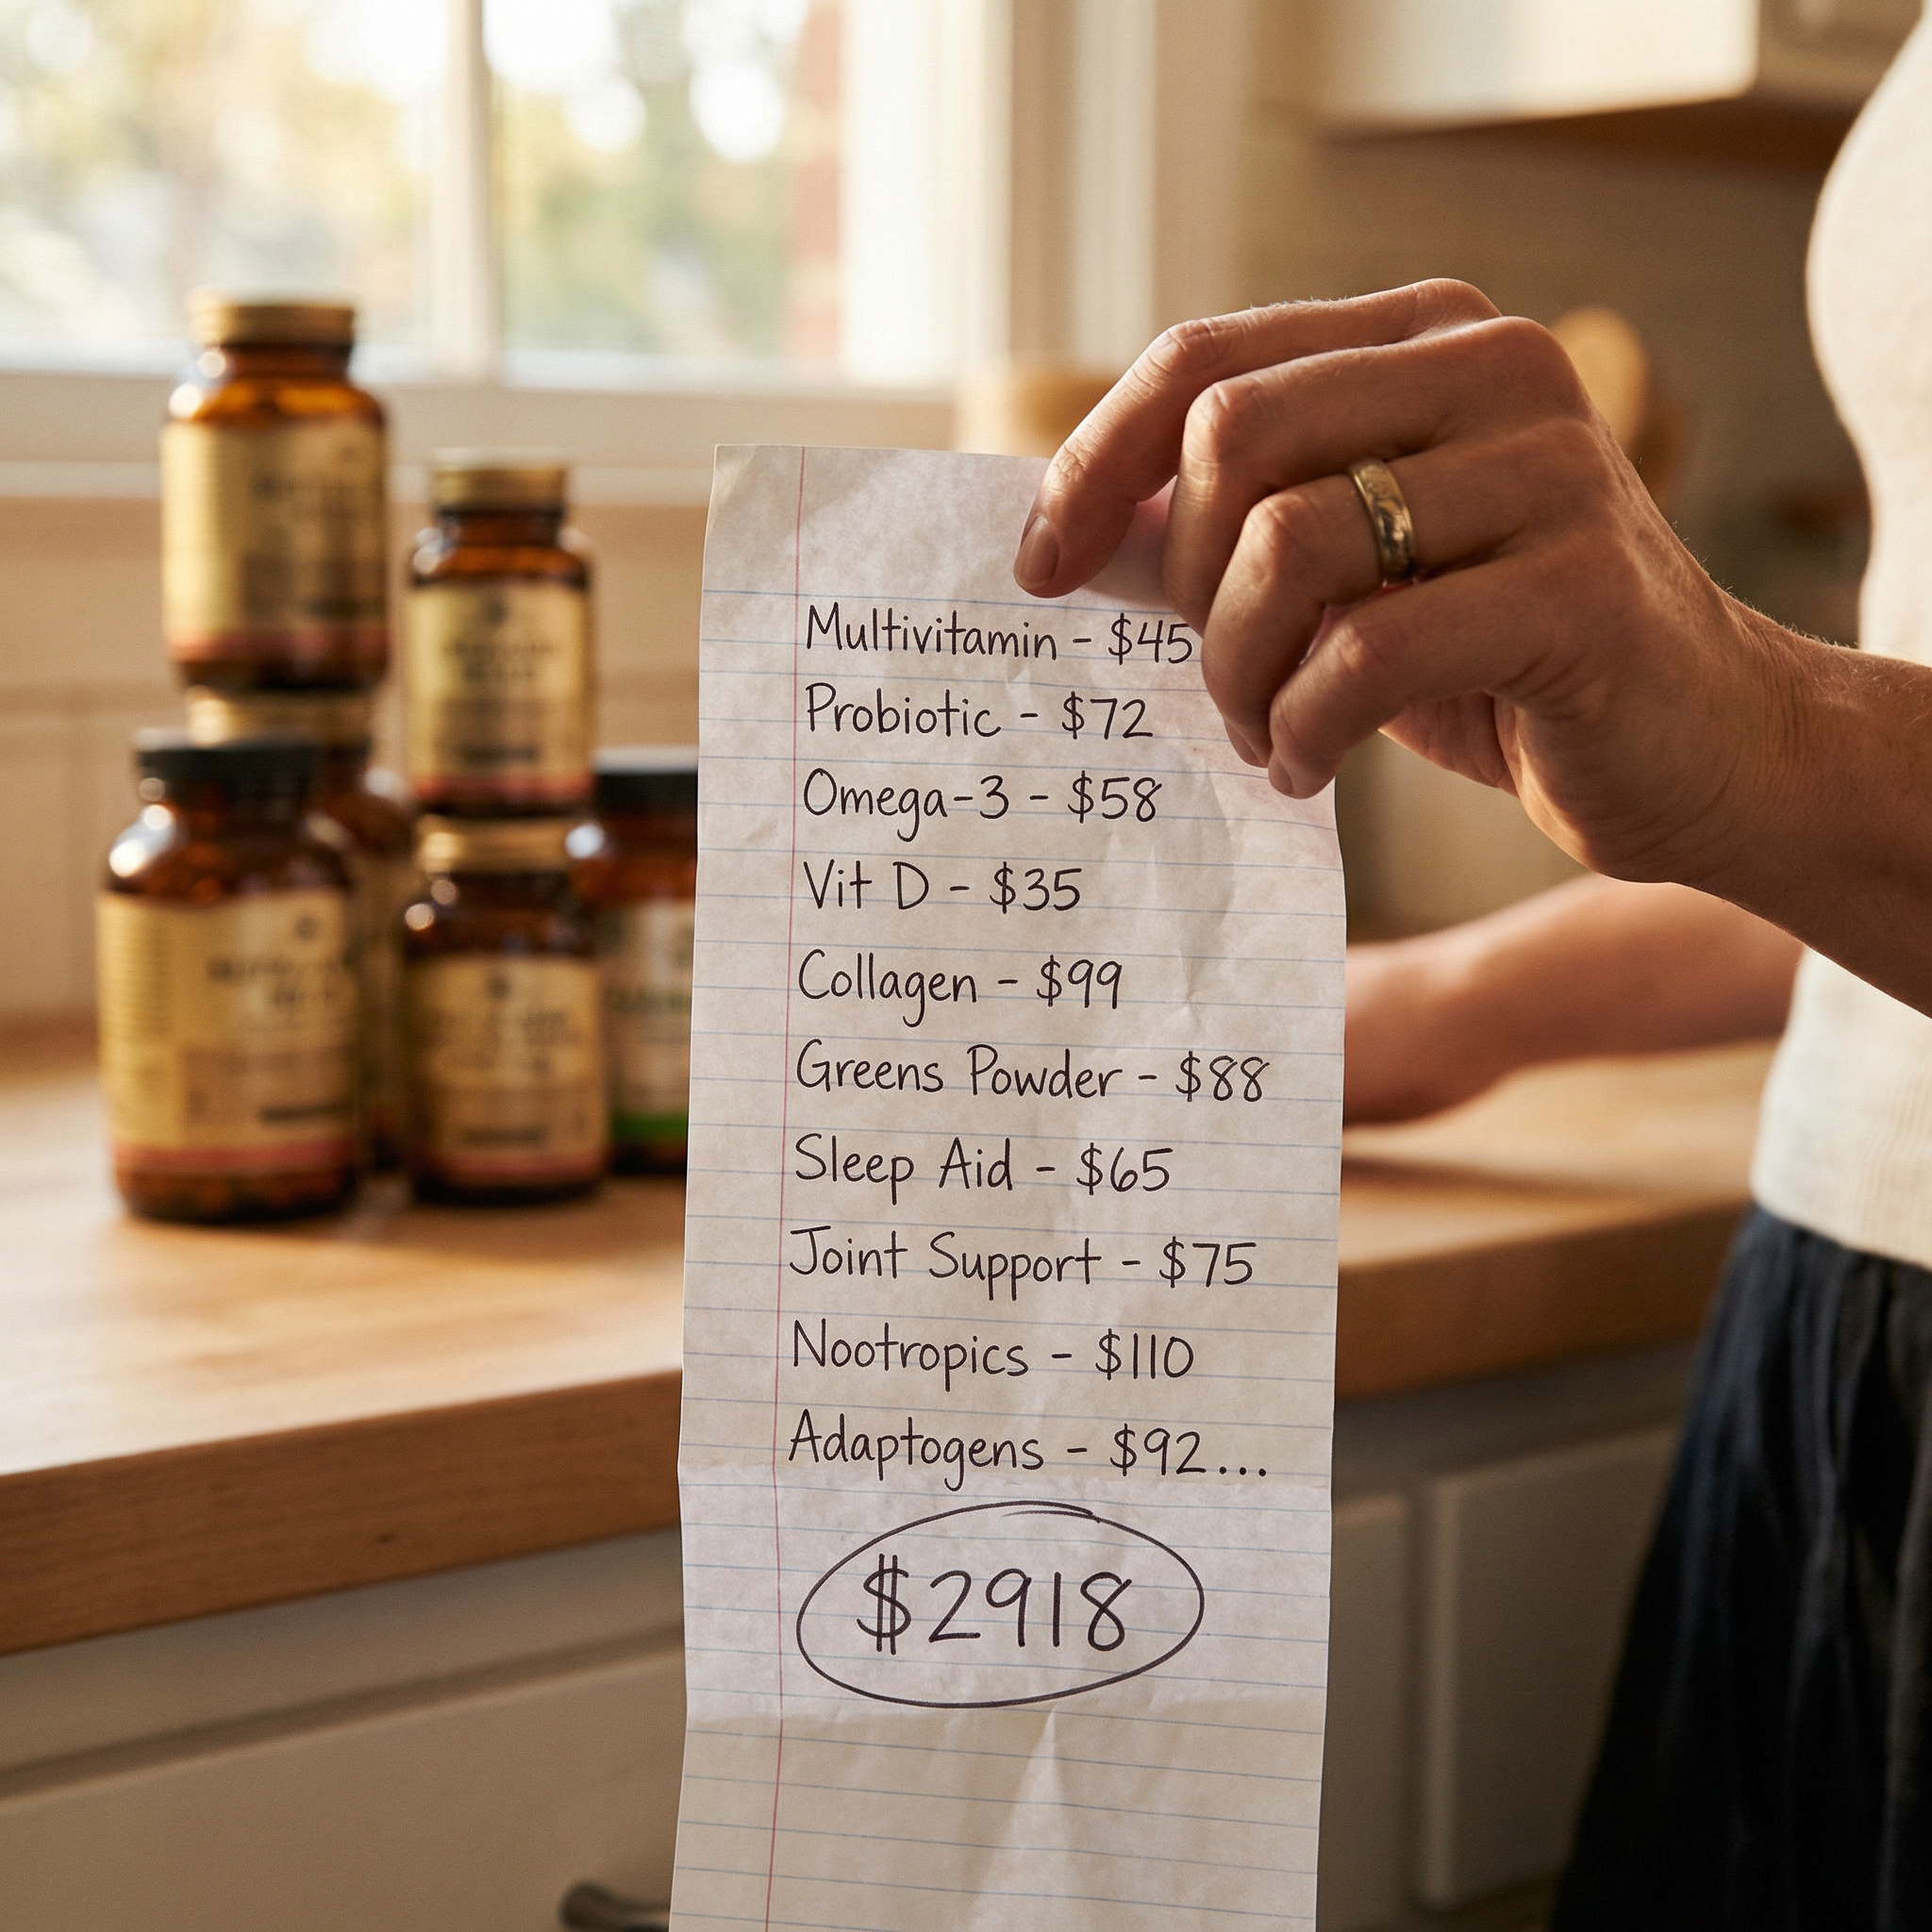 Multivitamin - $45
Probiotic - $72
Omega-3 - $58
Vit D - $35
Collagen - $99
Greens Powder - $88
Sleep Aid - $65
Joint Support - $75
Nootropics - $110
Adaptogens - $92...
$2918